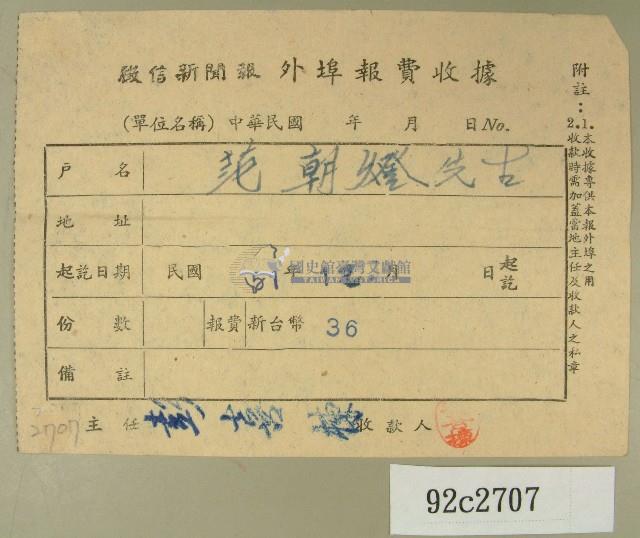 徵信新聞報 外埠報費收據
(單位名稱) 中華民國 年 月 日 No.
戶名 范朝燈先
地址
起訖日期 民國 年 月 日 起訖
份數 報費 新台幣 36
備註
主任 收款人
附註：
1.本收據專供本報外埠之用
2.收款時需加蓋當地主任及收款人之私章
國史館臺灣文獻館
TAIWAN HISTORICA
2707
92c2707